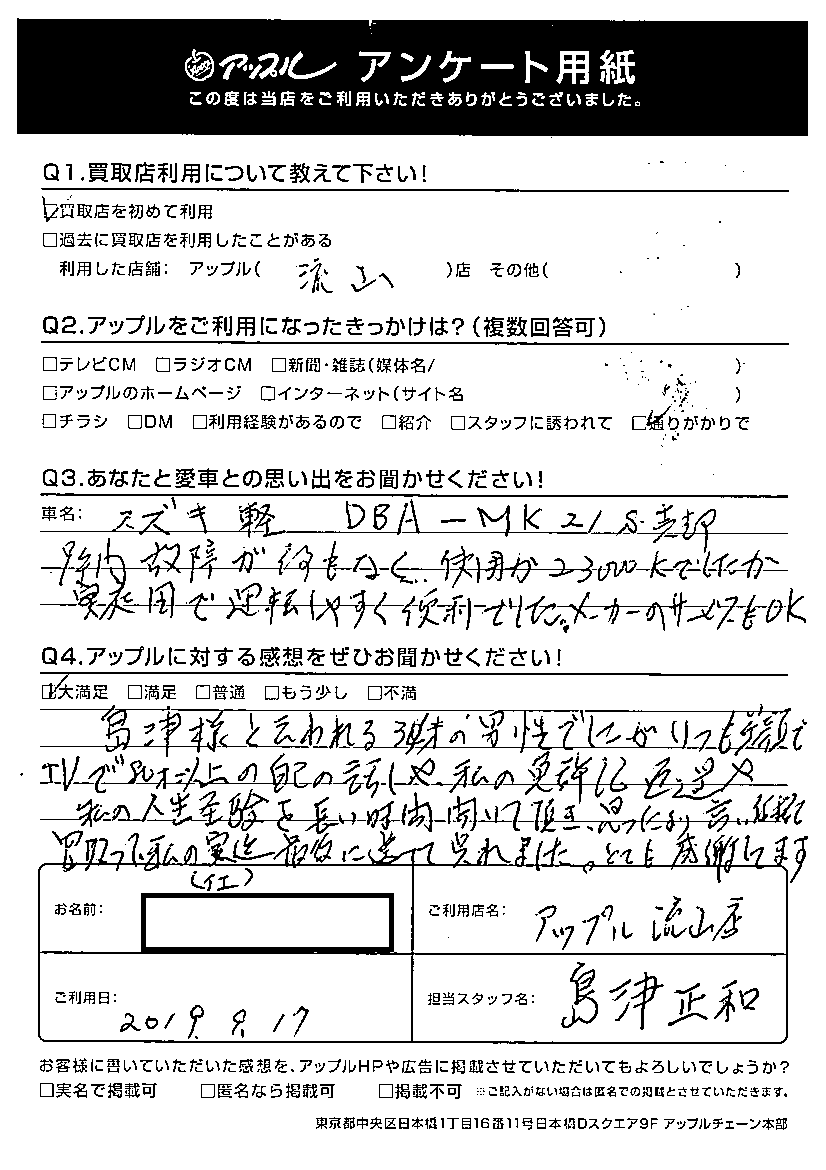 アップル アンケート用紙
この度は当店をご利用いただきありがとうございました。
Q1.買取店利用について教えて下さい!
買取店を初めて利用
□過去に買取店を利用したことがある
利用した店舗: アップル( 流山 )店 その他( )
Q2.アップルをご利用になったきっかけは?(複数回答可)
□テレビCM □ラジオCM □新聞・雑誌(媒体名/ )
□アップルのホームページ □インターネット(サイト名 )
□チラシ □DM □利用経験があるので □紹介 □スタッフに誘われて □通りがかりで
Q3.あなたと愛車との思い出をお聞かせください!
車名: スズキ 軽 DBA-MK21S
故障が何もなく 使用が23000Kでしたが
実走用で運転しやすく便利でした。メーカーのサービスもOK
Q4.アップルに対する感想をぜひお聞かせください!
大満足 □満足 □普通 □もう少し □不満
島津様と云われる の男性でしたがいつも笑顔で
以上の自己の話しや、私の
私の人生経験を長い時間聞いて頂き、思ったより
買取って私の 最後に送って呉れました。とても感謝してます
(イエ)
お名前:
ご利用店名: アップル 流山店
ご利用日: 2019. 9. 17
担当スタッフ名: 島津正和
お客様に書いていただいた感想を、アップルHPや広告に掲載させていただいてもよろしいでしょうか?
□実名で掲載可 □匿名なら掲載可 □掲載不可 ※ご記入がない場合は匿名での掲載とさせていただきます。
東京都中央区日本橋1丁目16番11号日本橋Dスクエア9F アップルチェーン本部